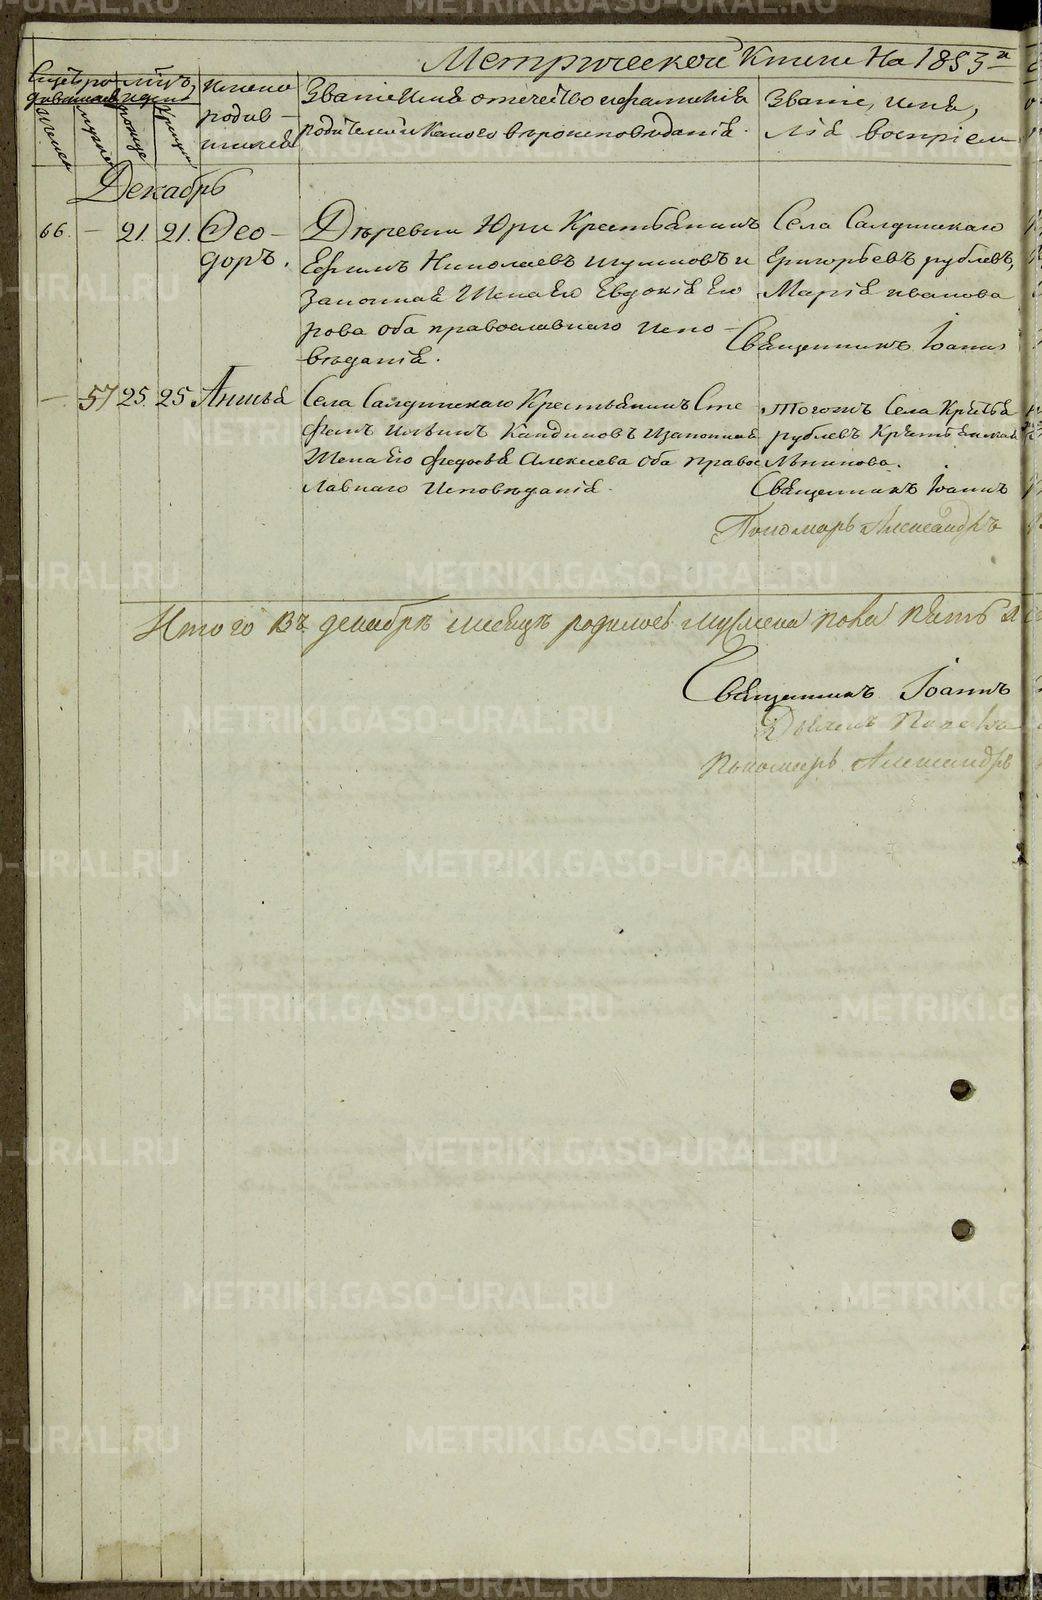 Метрической Книги На 1853 й
Счетъ ро мѣц
дившихся и день
Имена
родив-
шихся
Званіе Имя отчество и фамилія
родителей и какого вѣроисповѣданія.
Званіе, имя,
лія воспріем
Декабрь
66. — 21. 21. Ѳео-
доръ.
Деревни Юри Крестьянинъ
Ефимъ Николаевъ Шумковъ и
Законная Жена Его Евдокія Его
рова оба православнаго испо-
вѣданія.
Села Салдинскаго
Григорьевъ рублевъ,
Марія иванова
Священникъ Іоаннъ
— 57 25. 25 Анисья
Села Салдинскаго Крестьянинъ Сте
фанъ Ильинъ Кандиковъ И законная
Жена Его Федосья Алексеева оба право
славнаго Исповѣданія.
Тогожъ Села Крѣстья
рублевъ Крѣстьянская
Священникъ Іоаннъ
Пономарь Александръ
Итого въ декабрѣ месецѣ родилось мужеска пола пять
Священникъ Іоаннъ
Пономарь Александръ
METRIKI.GASO-URAL.RU